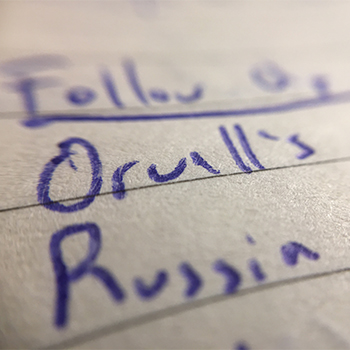 Follow
Orwll's
Russia